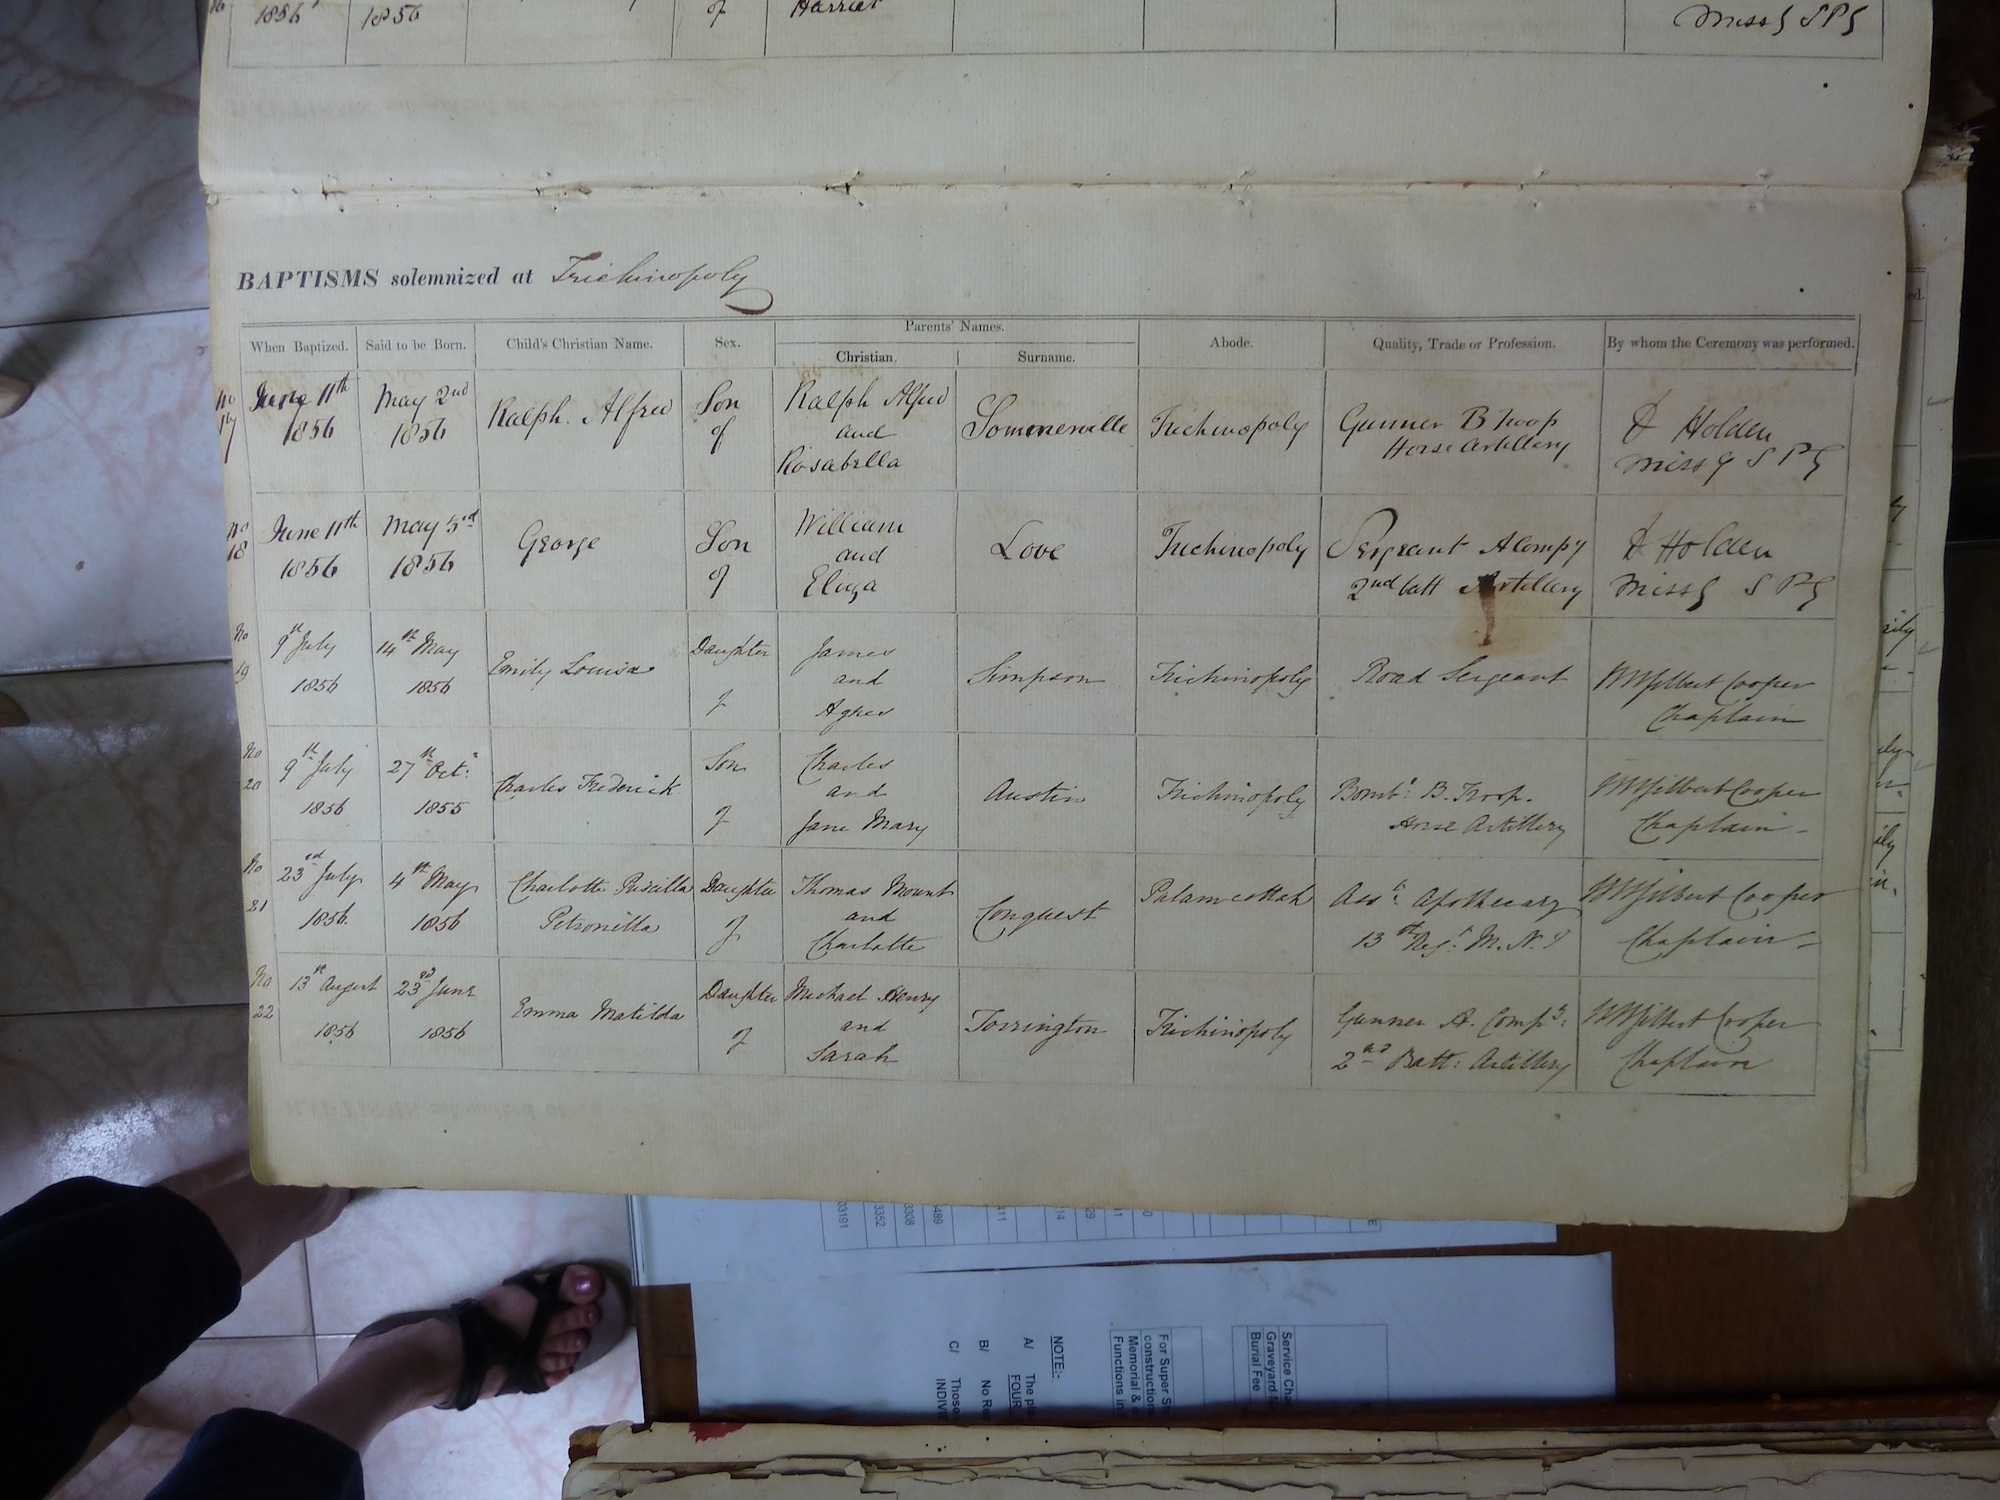 16 1856 1856 of Harriet Miss S P G
BAPTISMS solemnized at Trichinopoly
Parents' Names.
When Baptized. Said to be Born. Child's Christian Name. Sex. Christian. Surname. Abode. Quality, Trade or Profession. By whom the Ceremony was performed.
No June 11th May 2nd Ralph Alfred Son Ralph Alfred Somerville Trichinopoly Gunner B Troop D Holden
17 1856 1856 of and Horse Artillery Missy S P G
Rosabella
No June 11th May 3rd George Son William Love Trichinopoly Sergeant A Compy D Holden
18 1856 1856 of and 2nd batt Artillery Miss S P G
Eliza
No 9th July 14th May Emily Louisa Daughter James Simpson Trichinopoly Road Sergeant W Wilbert Cooper
19 1856 1856 of and Chaplain
Agnes
No 9th July 27th Oct: Charles Frederick Son Charles Austin Trichinopoly Bombr: B. Troop. Cooper
20 1856 1855 of and Horse Artillery Chaplain
Jane Mary
No 23rd July 4th May Charlotte Priscilla Daughter Thomas Mount Conquest Palamcottah Asst: Apothecary Cooper
21 1856. 1856 Petronilla of and 13th Regt: M. N. I Chaplain
Charlotte
No 13th August 23rd June Emma Matilda Daughter Michael Henry Torrington Trichinopoly Gunner A. Compy: Cooper
22 1856 1856 of and 2nd Batt: Artillery Chaplain
Sarah
03191
3352
3308
489
411
14
29
11
NOTE:-
A/ The pl
FOUR
B/ No Re
C/ Those
INDIVI
For Super S
construction
Memorial &
Functions in
Service Cha
Graveyard
Burial Fee